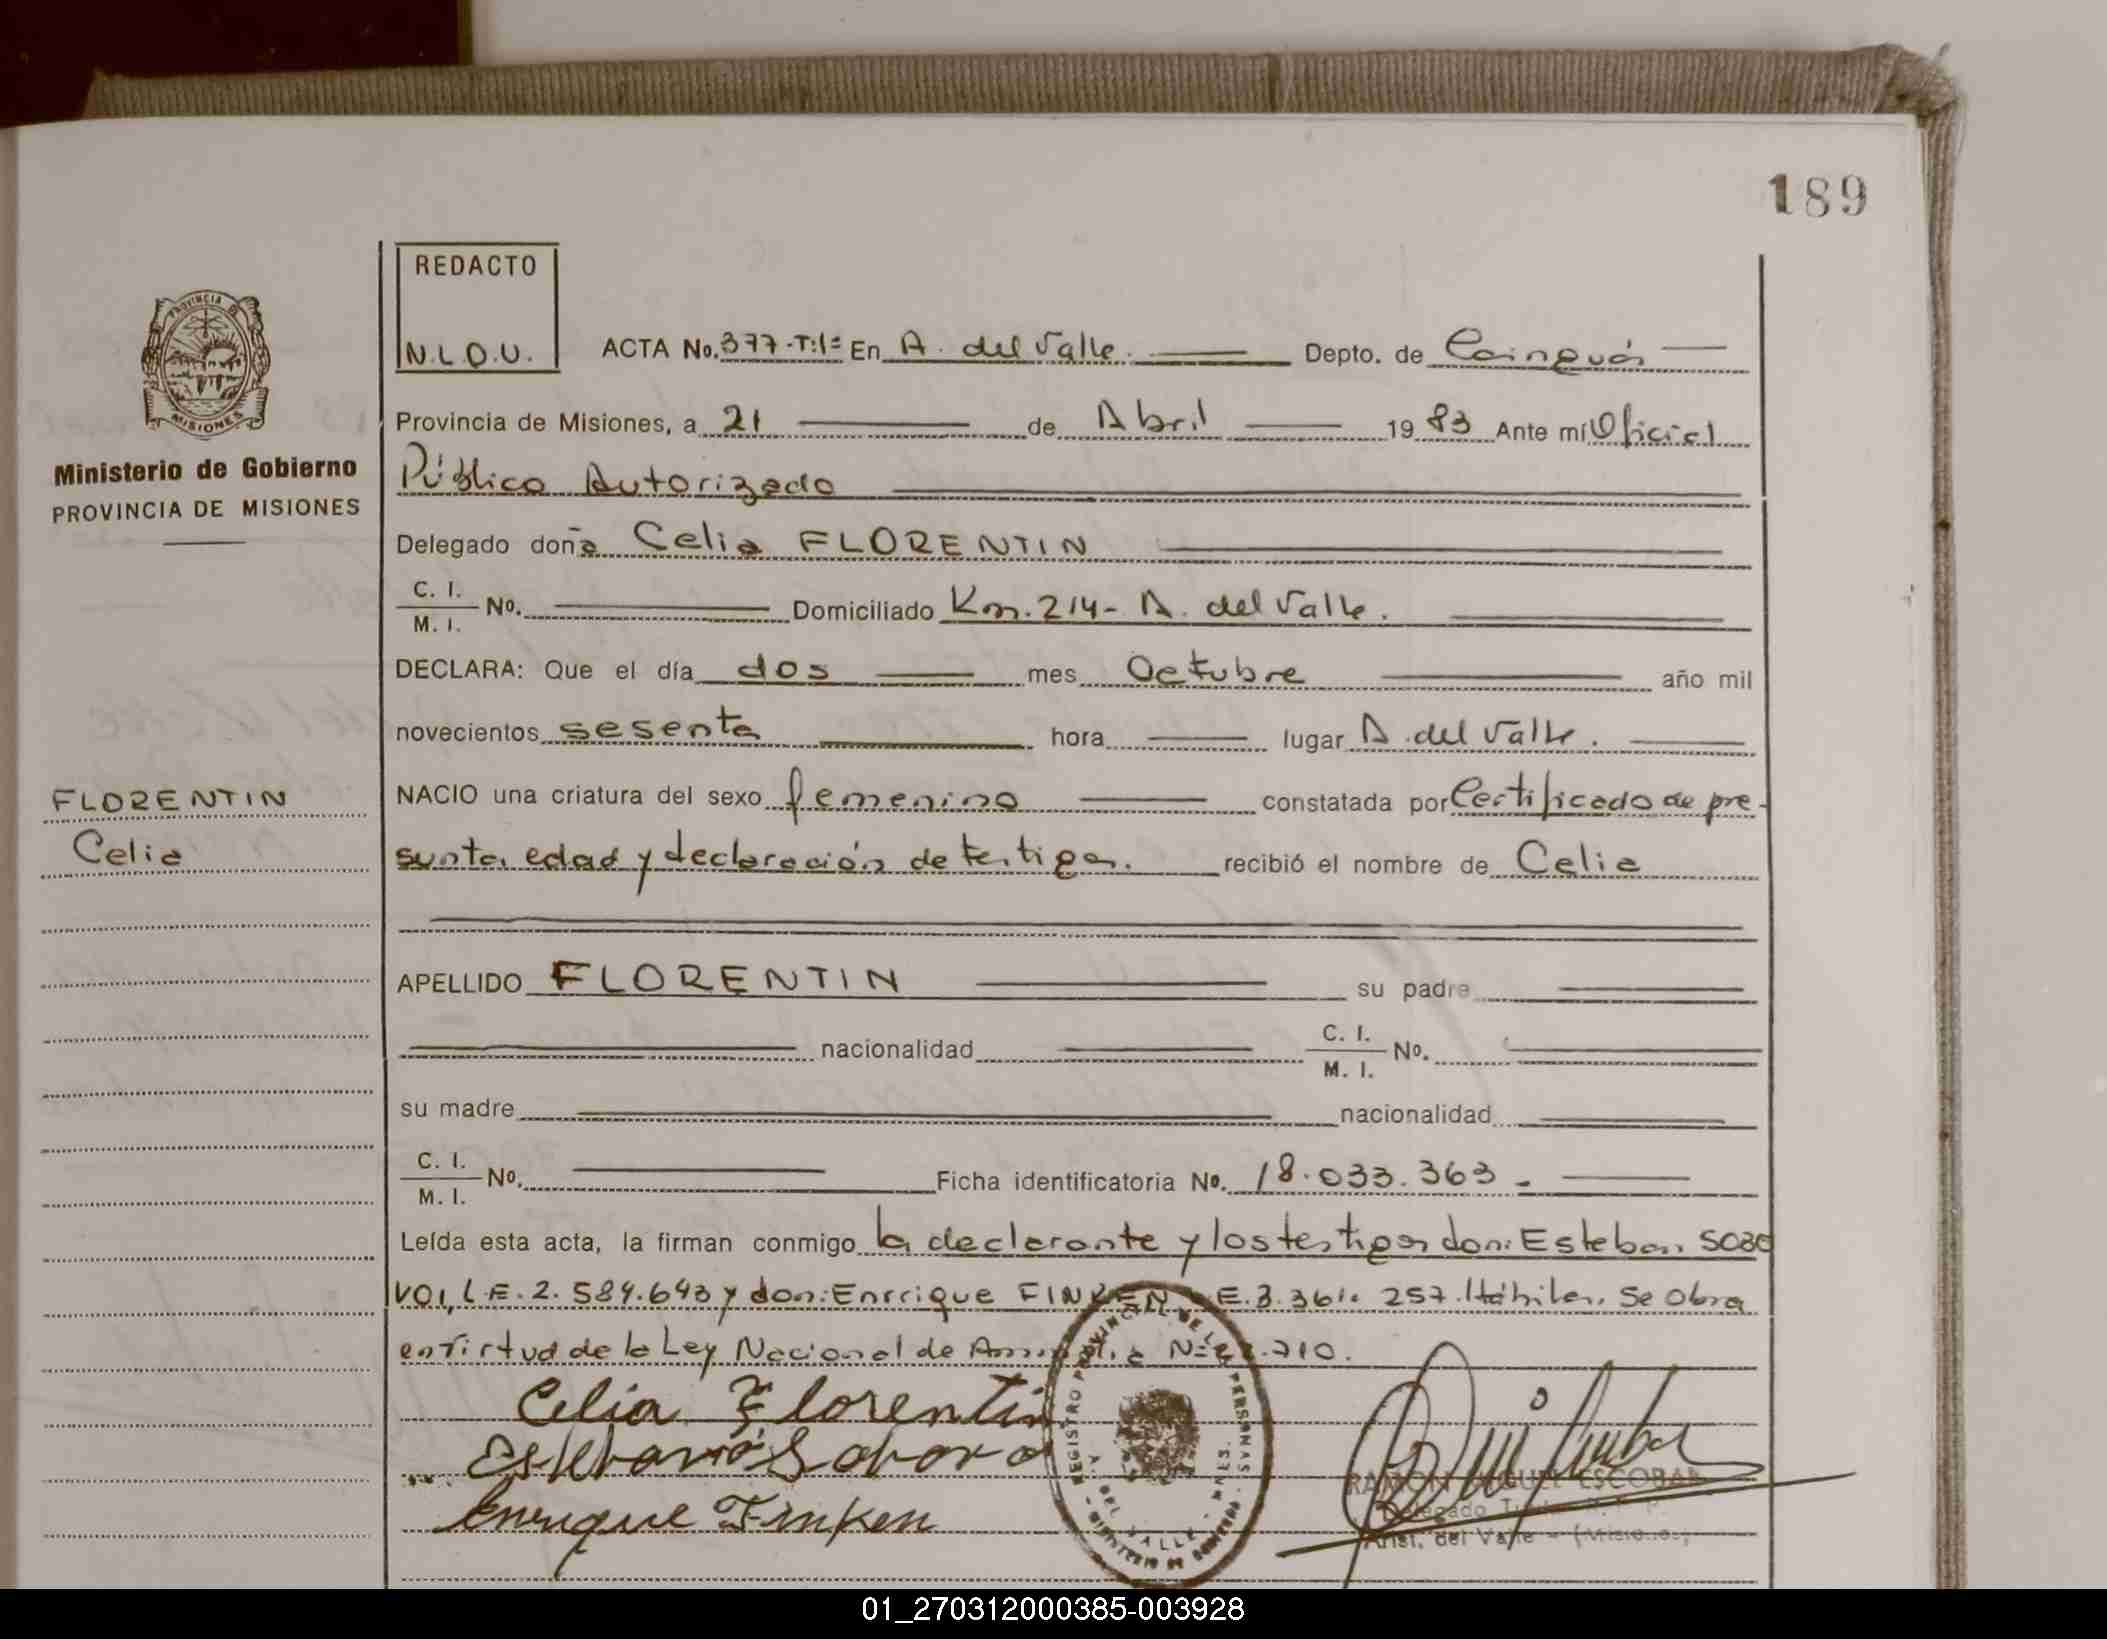 189
REDACTO
N.L.O.U.
ACTA No. 377-T:1º En A. del Valle. Depto. de Cainguás
Provincia de Misiones, a 21 de Abril 1983 Ante mí Oficial
Público Autorizado
Ministerio de Gobierno
PROVINCIA DE MISIONES
Delegado doña Celia FLORENTIN
C. I.
M. I. No. Domiciliado Km. 214- A. del Valle.
DECLARA: Que el día dos mes Octubre año mil
novecientos sesenta hora lugar A. del Valle.
FLORENTIN
Celia
NACIO una criatura del sexo femenino constatada por Certificado de pre-
sunta edad y declaración de testigos. recibió el nombre de Celia
APELLIDO FLORENTIN su padre
nacionalidad C. I.
M. I. No.
su madre nacionalidad
C. I.
M. I. No. Ficha identificatoria No. 18.033.363.-
Leída esta acta, la firman conmigo la declarante y los testigos don: Esteban SOBO
VOI, L.E. 2.584.643 y don: Enrrique FINKEN E. 3.361. 257. Hábiles. Se obra
en virtud de la Ley Nacional de Amnistía Nº 22.710.
Celia Florentin
Enrrique Finken
REGISTRO PROVINCIAL DE LAS PERSONAS
A. DEL VALLE - MNES.
MINISTERIO DE GOBIERNO
RAMON MIGUEL ESCOBAR
Delegado
Arist. del Valle - (Misiones)
01_270312000385-003928